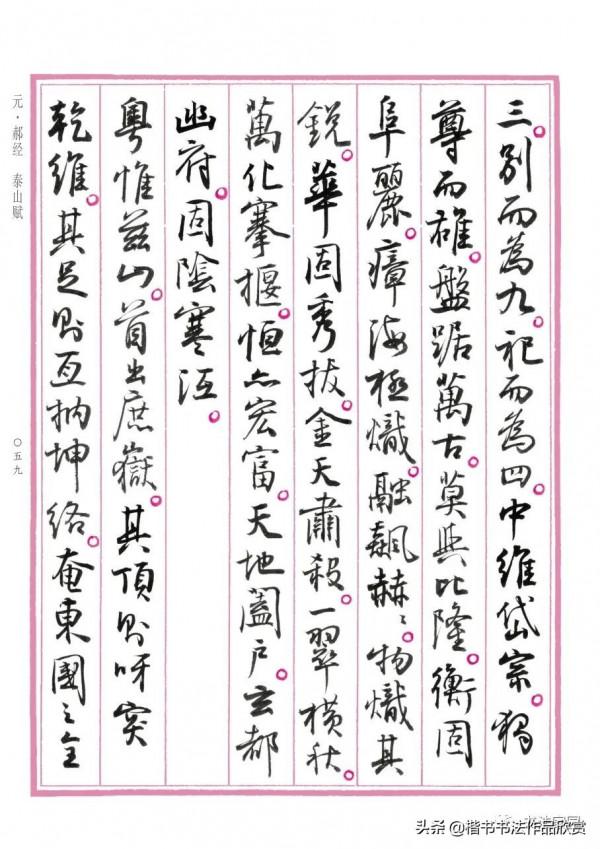 三。别而為九。祀而為四。中維岱宗。獨
尊而雄。盤踞萬古。莫與比隆。衡固
阜麗。瘴海極熾。融飆赫〻。物熾其
鋭。華固秀拔。金天肅殺。一翠横秋。
萬化搴揠。恒亦宏富。天地闔户。玄都
幽府。固陰寒沍。
粤惟兹山。首出庶嶽。其頂則呀突
乾維。其足則亙坤絡。奄東國之全
元·郝经 泰山赋
〇五九
头条 @楷书书法作品欣赏